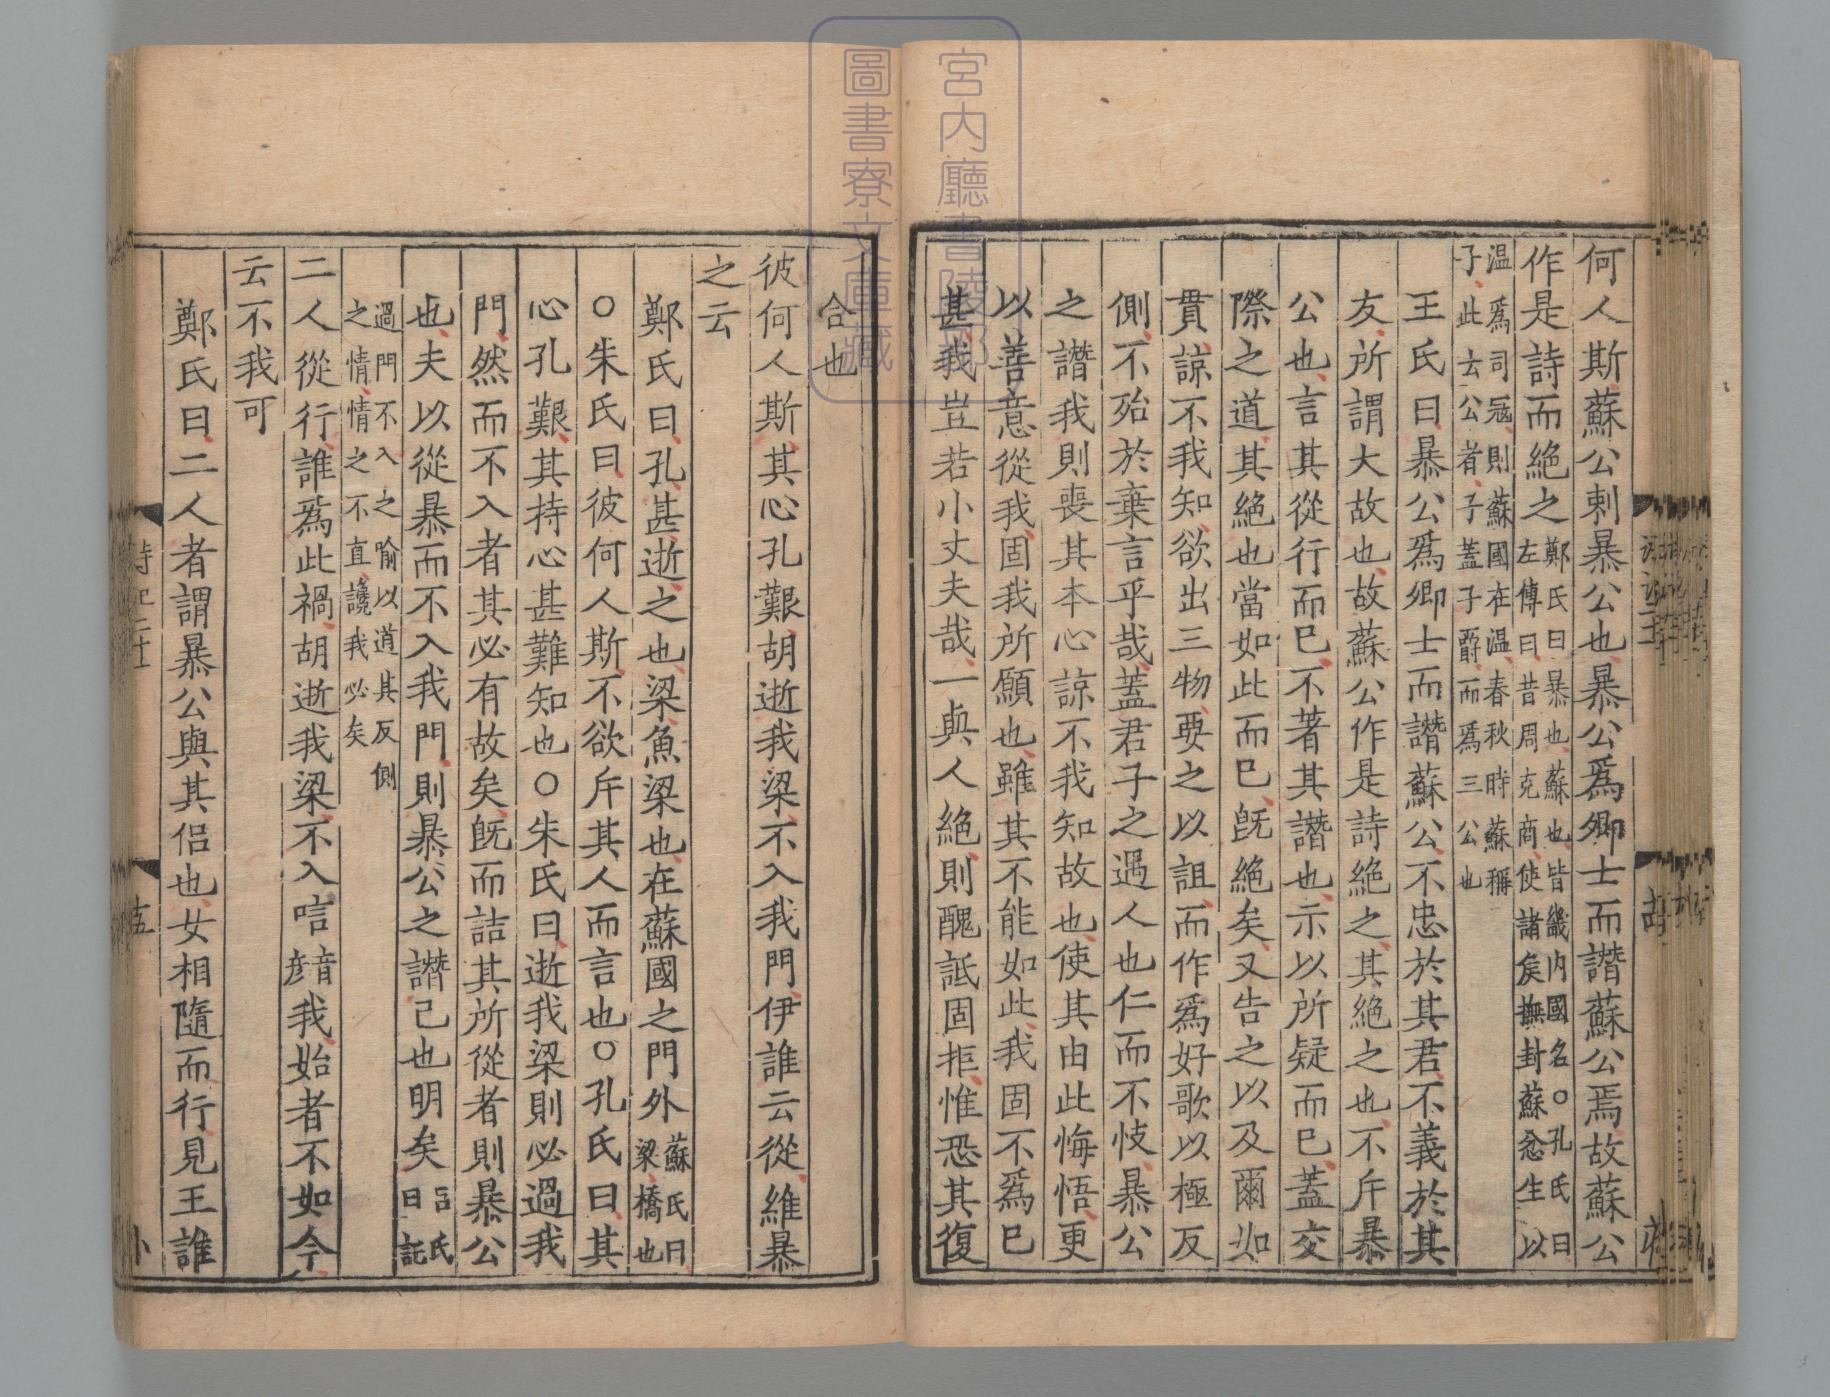 何人斯蘇公刺暴公也暴公爲卿士而譖蘇公焉故蘇公
作是詩而絶之鄭氏曰暴也蘇也皆畿内國名○孔氏曰
左傳曰昔周克商使諸矦撫封蘇忿生以
温爲司寇則蘇國在温春秋時蘇稱
子此云公者子蓋子爵而爲三公也
王氏曰暴公爲卿士而譖蘇公不忠於其君不義於其
友所謂大故也故蘇公作是詩絶之其絶之也不斥暴
公也言其從行而已不著其譖也示以所疑而已蓋交
際之道其絶也當如此而已旣絶矣又告之以及爾如
貫諒不我知欲出三物要之以詛而作爲好歌以極反
側不殆於棄言乎哉蓋君子之遇人也仁而不忮暴公
之譖我則喪其本心諒不我知故也使其由此悔悟更
以善意從我固我所願也雖其不能如此我固不爲已
甚我豈若小丈夫哉一與人絶則醜詆固拒惟恐其復
合也
彼何人斯其心孔艱胡逝我梁不入我門伊誰云從維暴
之云
鄭氏曰孔甚逝之也梁魚梁也在蘇國之門外蘇氏曰
梁橋也
○朱氏曰彼何人斯不欲斥其人而言也○孔氏曰其
心孔艱其持心甚難知也○朱氏曰逝我梁則必過我
門然而不入者其必有故矣旣而詰其所從者則暴公
也夫以從暴而不入我門則暴公之譖己也明矣吕氏
曰託
過門不入之喻以道其反側
之情情之不直讒我必矣
二人從行誰爲此禍胡逝我梁不入唁音彦我始者不如今
云不我可
鄭氏曰二人者謂暴公與其侣也女相隨而行見王誰
宮内廳書陵部
圖書寮文庫藏